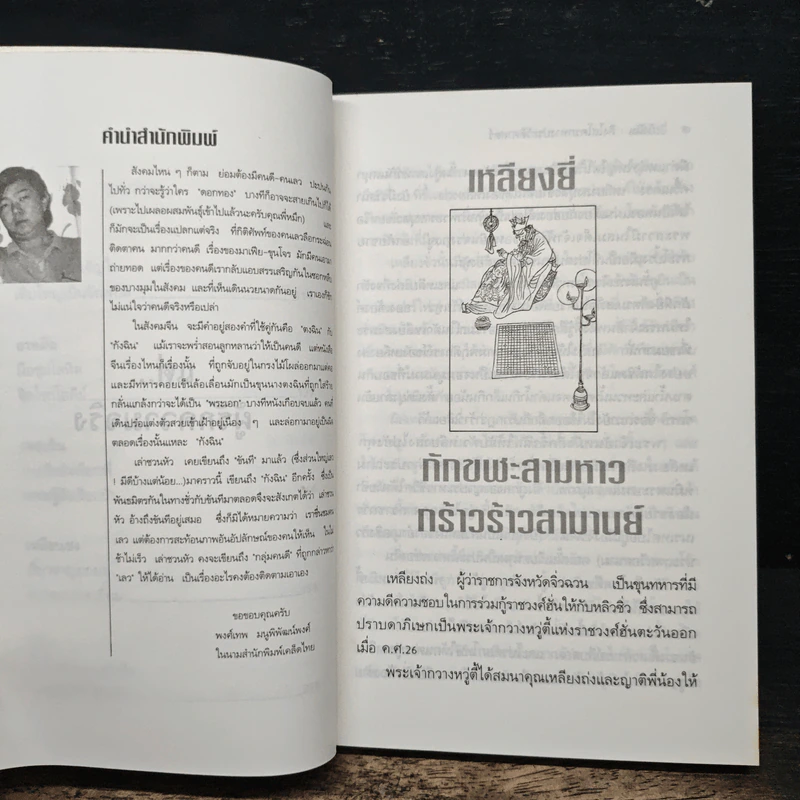 คำนำสำนักพิมพ์
สังคมไหน ๆ ก็ตาม ย่อมต้องมีคนดี-คนเลว ปะปนกัน
ไปทั่ว กว่าจะรู้ว่าใคร "ดอกทอง" บางทีก็อาจจะสายเกินไปก็ได้
(เพราะไปเผลอผสมพันธุ์เข้าไปแล้วนะครับคุณพี่หมึก)
ก็มักจะเป็นเรื่องแปลกแต่จริง ที่กิตติศัพท์ของคนเลวลือกระฉ่อน
ติดตาคน มากกว่าคนดี เรื่องของมาเฟีย-ขุนโจร มักมีคน
ถ่ายทอด แต่เรื่องของคนดีเรากลับแอบสรรเสริญกันในซอกหลืบ
ของบางมุมในสังคม และที่เห็นเดินนวยนาดกันอยู่ เราเองก็ชัก
ไม่แน่ใจว่าคนดีจริงหรือเปล่า
ในสังคมจีน จะมีคำอยู่สองคำที่ใช้คู่กันคือ "ตงฉิน" กับ
"กังฉิน" แม้เราจะพร่ำสอนลูกหลานว่าให้เป็นคนดี แต่หนัง
จีนเรื่องไหนก็เรื่องนั้น ที่ถูกจับอยู่ในกรงไม้โผล่ออกมาแต่คอ
และมีทหารคอยเข็นล้อเลื่อนมักเป็นขุนนางตงฉินที่ถูกใส่ร้าย
กลั่นแกล้งกว่าจะได้เป็น "พระเอก" บางทีหนังเกือบจบแล้ว คนที่
เดินปร๋อแต่งตัวสวยเข้าเฝ้าอยู่เนือง ๆ และล่อกามาอยู่เป็นนิจ
ตลอดเรื่องนั้นแหละ "กังฉิน"
เล่าชวนหัว เคยเขียนถึง "ขันที" มาแล้ว (ซึ่งส่วนใหญ่เลว
! มีดีบ้างแต่น้อย...)มาคราวนี้ เขียนถึง "กังฉิน" อีกครั้ง ซึ่งเป็น
พันธมิตรกันในทางชั่วกับขันทีมาตลอดจึงจะสังเกตได้ว่า เล่าชวน
หัว อ้างถึงขันทีอยู่เสมอ ซึ่งก็มิได้หมายความว่า เราชื่นชมคน
เลว แต่ต้องการสะท้อนภาพอันอัปลักษณ์ของคนให้เห็น
ช้าไม่เร็ว เล่าชวนหัว คงจะเขียนถึง "กลุ่มคนดี" ที่ถูกกล่าวหาว่า
"เลว" ให้ได้อ่าน เป็นเรื่องอะไรคงต้องติดตามเอาเอง
ขอขอบคุณครับ
พงศ์เทพ มนูพิพัฒน์พงศ์
ในนามสำนักพิมพ์เคล็ดไทย
เหลียงยี่
กักขฬะสามหาว
กร้าวร้าวสามานย์
เหลียงถ่ง ผู้ว่าราชการจังหวัดจิ่วฉวน เป็นขุนทหารที่มี
ความดีความชอบในการร่วมกู้ราชวงศ์ฮั่นให้กับหลิวซิ่ว ซึ่งสามารถ
ปราบดาภิเษกเป็นพระเจ้ากวางหวู่ตี้แห่งราชวงศ์ฮั่นตะวันออก
เมื่อ ค.ศ.26
พระเจ้ากวางหวู่ตี้ได้สมนาคุณเหลียงถ่งและญาติพี่น้องให้